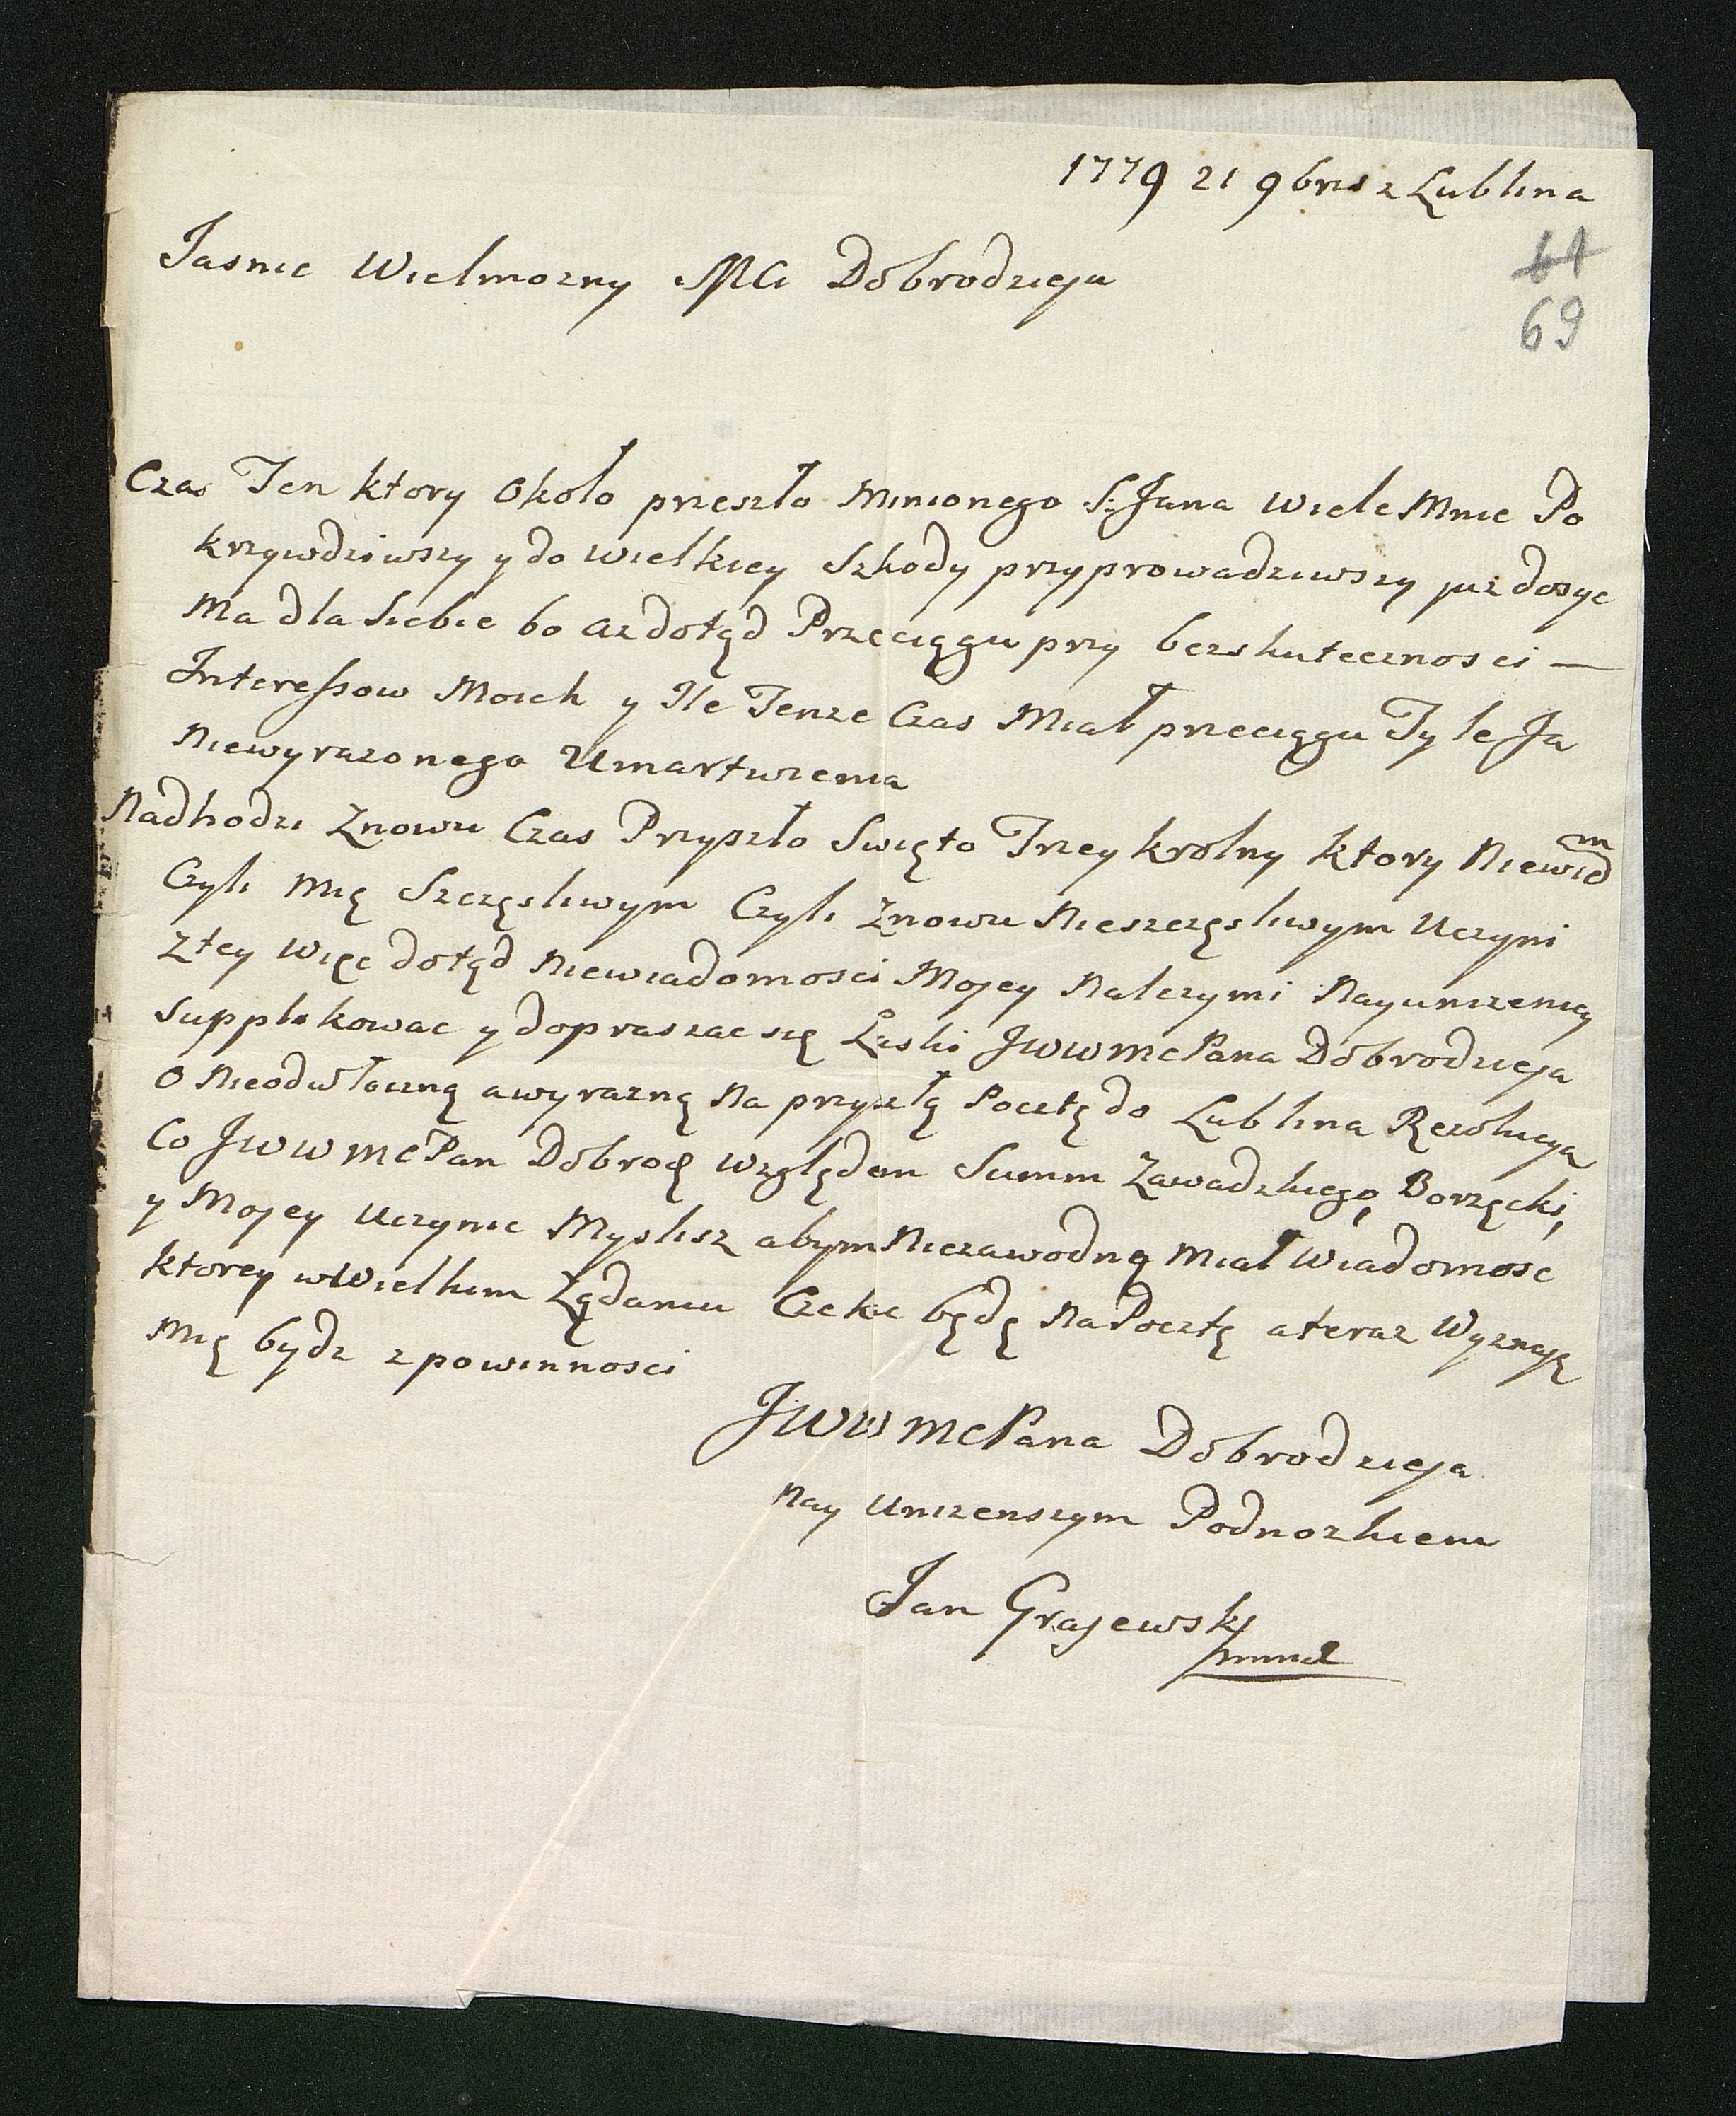 1779 21 9bris z Lublina
Jasnie Wielmozny Mci Dobrodzieju
61
69
Czas Ten ktory Około przeszło Minionego S: Jana Wiele Mnie Po
krzywdziwszy y do Wielkiey Szkody przyprowadziwszy juz dosyc
Ma dla Siebie bo az dotąd Przeciągu przy bezskutecznosci —
Interessow Moich y Ile Tenze Czas Miał przeciągu Tyle Ja
Niewyrazonego Umartwienia
Nadhodzi Znowu Czas Przyszło Swięto Trzey krolny ktory Niewiem
Czyli Mię Szczęsliwym Czyli Znowu Nieszczęsliwym Uczyni
Ztey Więc dotąd Niewiadomosci Mojey Nalezy mi Nayunizeniey
Supplikowac y dopraszac się Łaski JWWMcPana Dobrodzieja
O Nieodwłoczną a wyrazną Na przyszłą Pocztę do Lublina Rezolucyą
Co JWWMcPan Dobrodz Względem Summ Zawadzkiego, Borzęcki,
y Mojey Uczynic Myslisz abym Niezawodną Miał Wiadomosc
ktorey w Wielkim Ządaniu Czekac będę Na Pocztę a teraz Wyznaję
Mię bydz z powinnosci
JWWMcPana Dobrodzieja
Nay Unizenszym Podnozkiem
Jan Grajewski
mmd